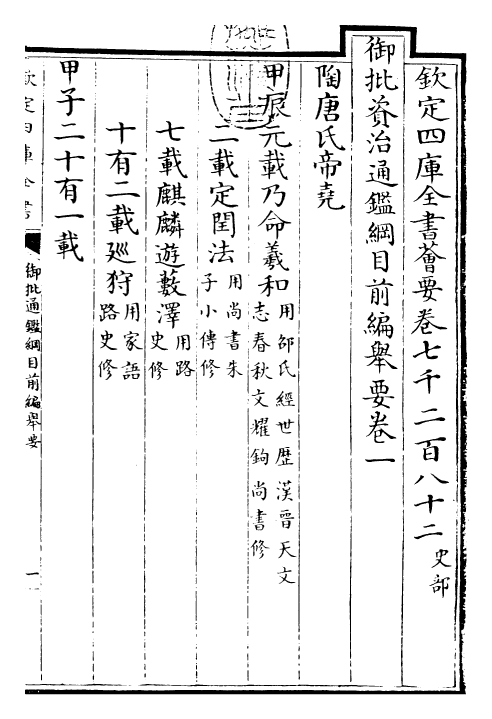 欽定四庫全書薈要卷七千二百八十二 史部
御批資治通鑑綱目前編舉要卷一
陶唐氏帝堯
甲辰元載乃命羲和用邵氏經世歴漢晉天文
志春秋文耀鉤尚書修
二載定閏法用尚書朱
子小傳修
七載麒麟遊藪澤用路
史修
十有二載廵狩用家語
路史修
甲子二十有一載
欽定四庫全書
御批通鑑綱目前編舉要
一